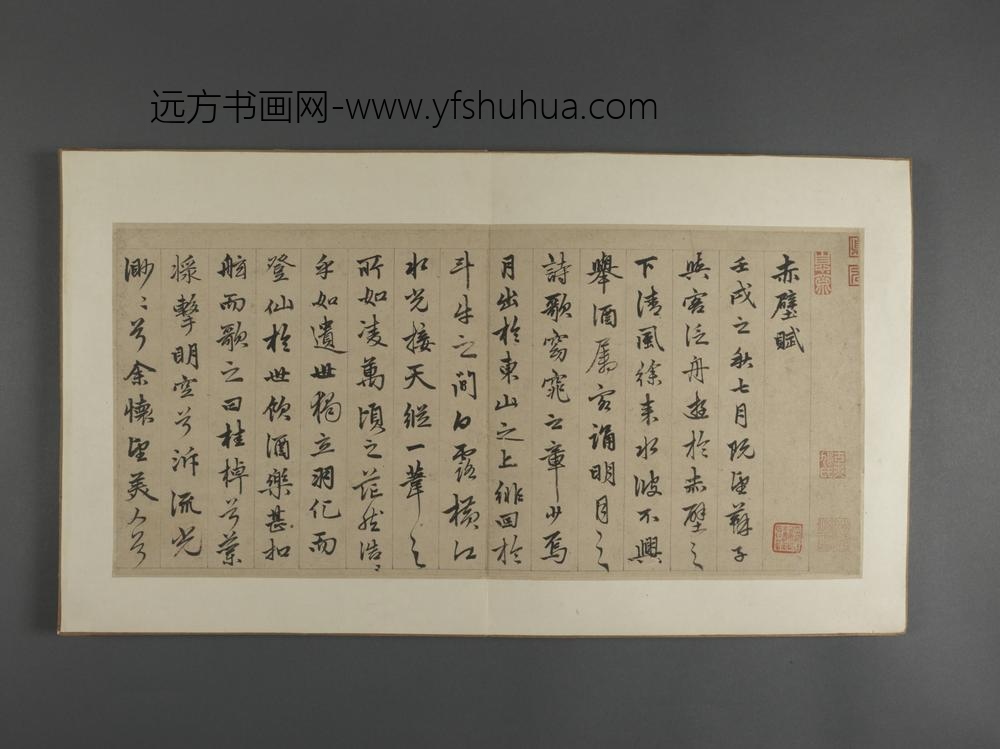 远方书画网-www.yfshuhua.com
赤壁賦
壬戌之秋七月既望蘇子
與客泛舟遊於赤壁之
下清風徐来水波不興
舉酒屬客誦明月之
詩歌窈窕之章少焉
月出於東山之上徘回於
斗牛之間白露橫江
水光接天縱一葦之
所如凌萬頃之茫然浩〻
乎如遺世獨立羽化而
登仙於世飲酒樂甚扣
舷而歌之曰桂棹兮蘭
槳擊明空兮泝流光
渺〻兮余懷望美人兮